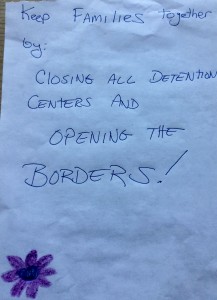 Keep Families together
by:
Closing all Detention
Centers and
Opening the
Borders!